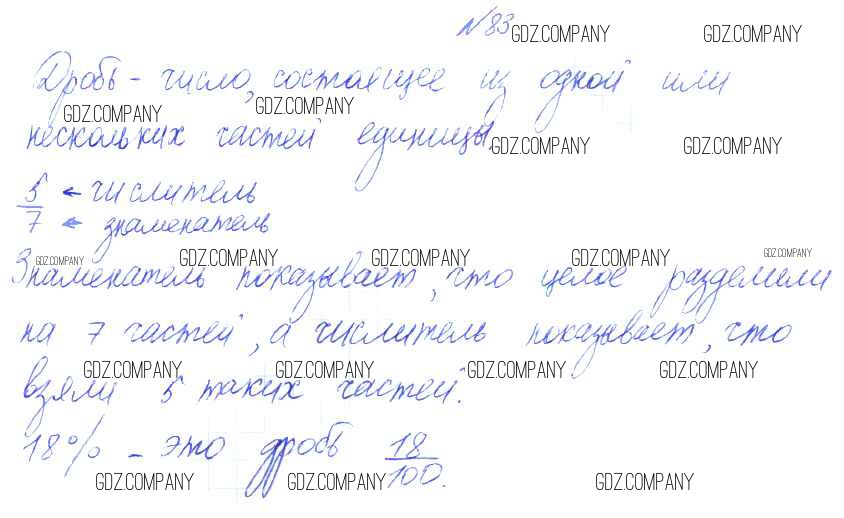 №83 GDZ.COMPANY GDZ.COMPANY
Дробь – число, состоящее из одной или
GDZ.COMPANY GDZ.COMPANY
нескольких частей единицы. GDZ.COMPANY GDZ.COMPANY
5 ← числитель
7 ← знаменатель
GDZ.COMPANY GDZ.COMPANY GDZ.COMPANY GDZ.COMPANY GDZ.COMPANY
Знаменатель показывает, что целое разделили
на 7 частей, а числитель показывает, что
GDZ.COMPANY GDZ.COMPANY GDZ.COMPANY GDZ.COMPANY
взяли 5 таких частей.
18% – это дробь 18/100.
GDZ.COMPANY GDZ.COMPANY GDZ.COMPANY